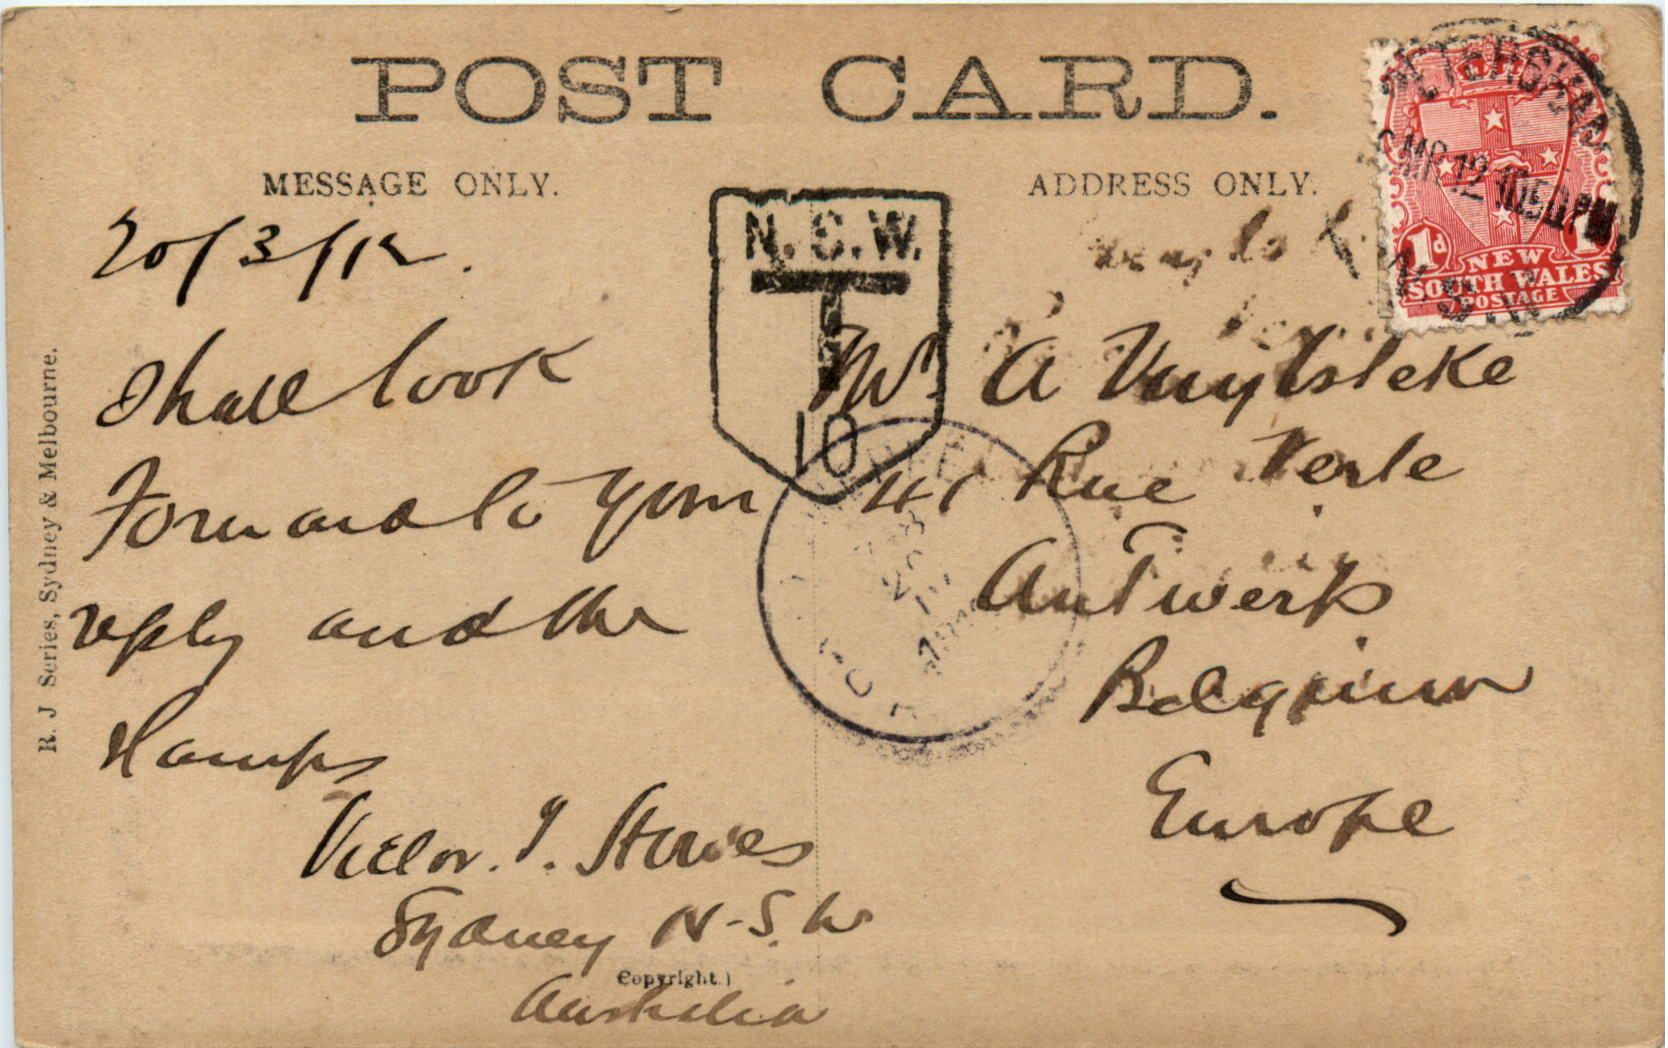 POST CARD.
MESSAGE ONLY.
ADDRESS ONLY:
20/3/12.
N.S.W.
T
10
1d 1d
NEW
SOUTH WALES
POSTAGE
PETERSHAM
MR 12 10 50 PM
N.S.W
Shall look
Forward to your
reply and the
stamps
Victor. J.
Sydney N-S.W
Australia
Mr A Vuylsteke
41 Rue Verte
Antwerp
Belgium
Europe
1912
R. J Series, Sydney & Melbourne.
Copyright.)